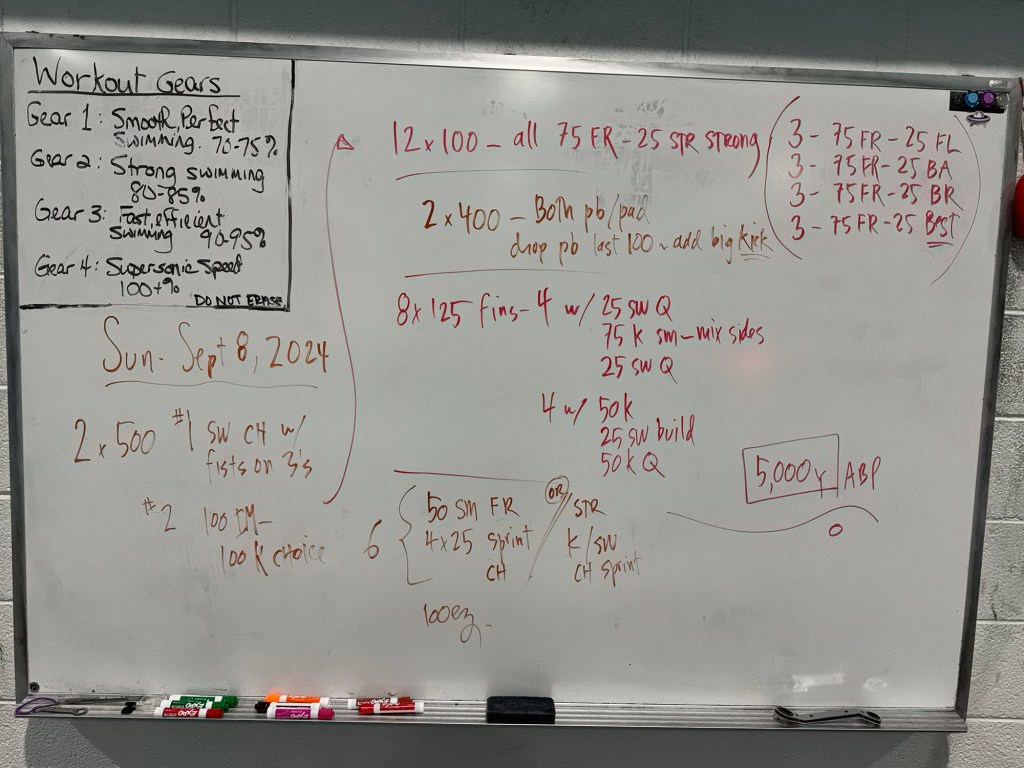 Workout Gears
Gear 1: Smooth, Perfect
Swimming. 70-75%
Gear 2: Strong swimming
80-85%
Gear 3: Fast, efficient
swimming 90-95%
Gear 4: Supersonic Speed
100+%
DO NOT ERASE
Sun- Sept 8, 2024
2 x 500 #1 SW CH w/
fists on 3's
#2 100 IM-
100 K CHOICE
12 x 100 - all 75 FR - 25 STR STRONG
3 - 75 FR - 25 FL
3 - 75 FR - 25 BA
3 - 75 FR - 25 BR
3 - 75 FR - 25 BEST
2 x 400 - Both pb/pad
drop pb last 100 - add big kick
8 x 125 fins - 4 w/ 25 SW Q
75 K sm - mix sides
25 SW Q
4 w/ 50 K
25 SW build
50 K Q
6 50 sm FR OR / STR
4 x 25 sprint K/SW
CH CH sprint
100 ez.
5,000 y ABP